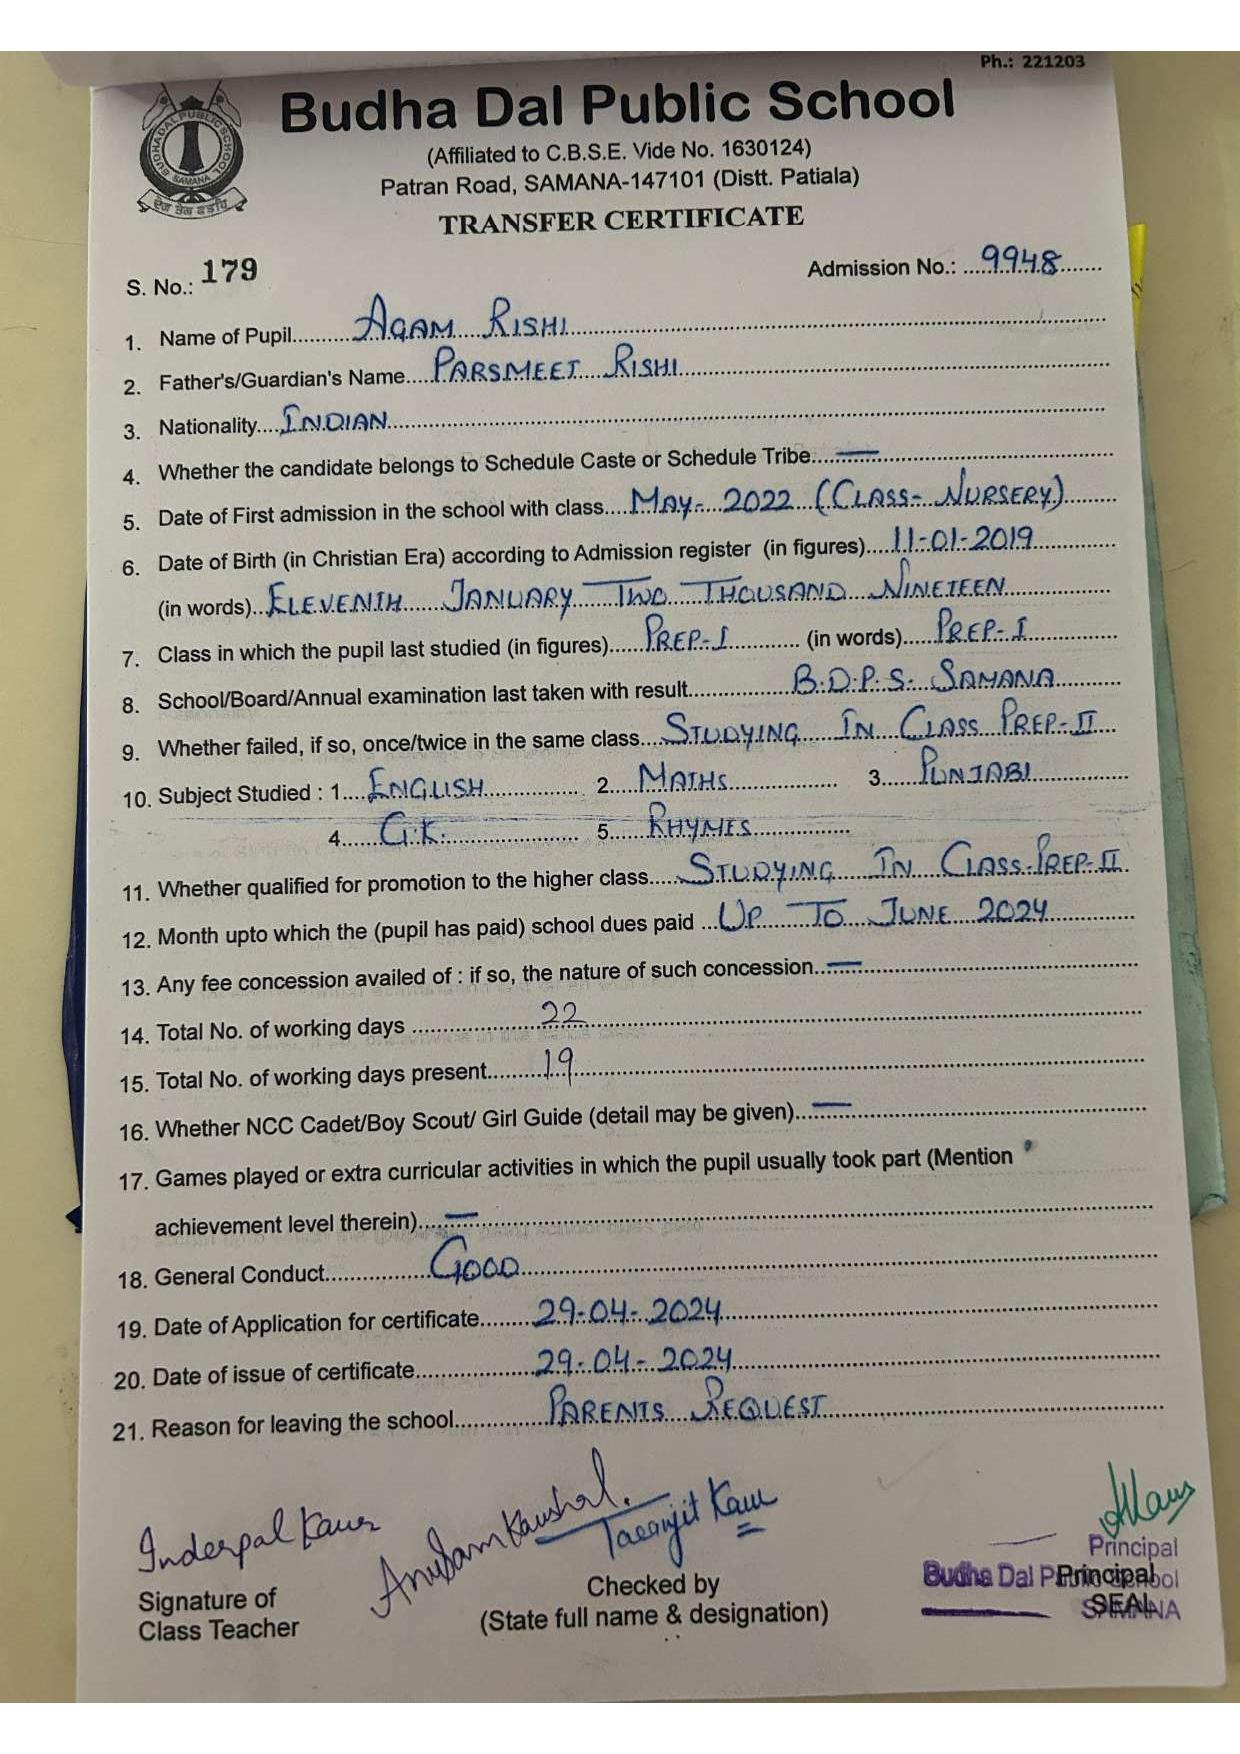 Ph.: 221203
Budha Dal Public School
(Affiliated to C.B.S.E. Vide No. 1630124)
Patran Road, SAMANA-147101 (Distt. Patiala)
TRANSFER CERTIFICATE
BUDHA DAL PUBLIC SCHOOL
SAMANA
ਦੇਗ ਤੇਗ ਫਤਹਿ
S. No.: 179 Admission No.: 9948
1. Name of Pupil AGAM RISHI
2. Father's/Guardian's Name PARSMEET RISHI
3. Nationality INDIAN
4. Whether the candidate belongs to Schedule Caste or Schedule Tribe —
5. Date of First admission in the school with class MAY- 2022 (CLASS- NURSERY)
6. Date of Birth (in Christian Era) according to Admission register (in figures) 11-01-2019
(in words) ELEVENTH JANUARY TWO THOUSAND NINETEEN
7. Class in which the pupil last studied (in figures) PREP-I (in words) PREP-I
8. School/Board/Annual examination last taken with result B.D.P.S. SAMANA
9. Whether failed, if so, once/twice in the same class STUDYING IN CLASS PREP-II
10. Subject Studied : 1. ENGLISH 2. MATHS 3. PUNJABI
4. G.K. 5. RHYMES
11. Whether qualified for promotion to the higher class STUDYING IN CLASS-PREP-II
12. Month upto which the (pupil has paid) school dues paid UP TO JUNE 2024
13. Any fee concession availed of : if so, the nature of such concession —
14. Total No. of working days 22
15. Total No. of working days present 19
16. Whether NCC Cadet/Boy Scout/ Girl Guide (detail may be given) —
17. Games played or extra curricular activities in which the pupil usually took part (Mention
achievement level therein) —
18. General Conduct GOOD
19. Date of Application for certificate 29-04-2024
20. Date of issue of certificate 29-04-2024
21. Reason for leaving the school PARENTS REQUEST
Inderpal Kaur Kaushal. Kaur
Signature of
Class Teacher
Checked by
(State full name & designation)
Principal
Budha Dal Public School
SAMANA
Principal
SEAL